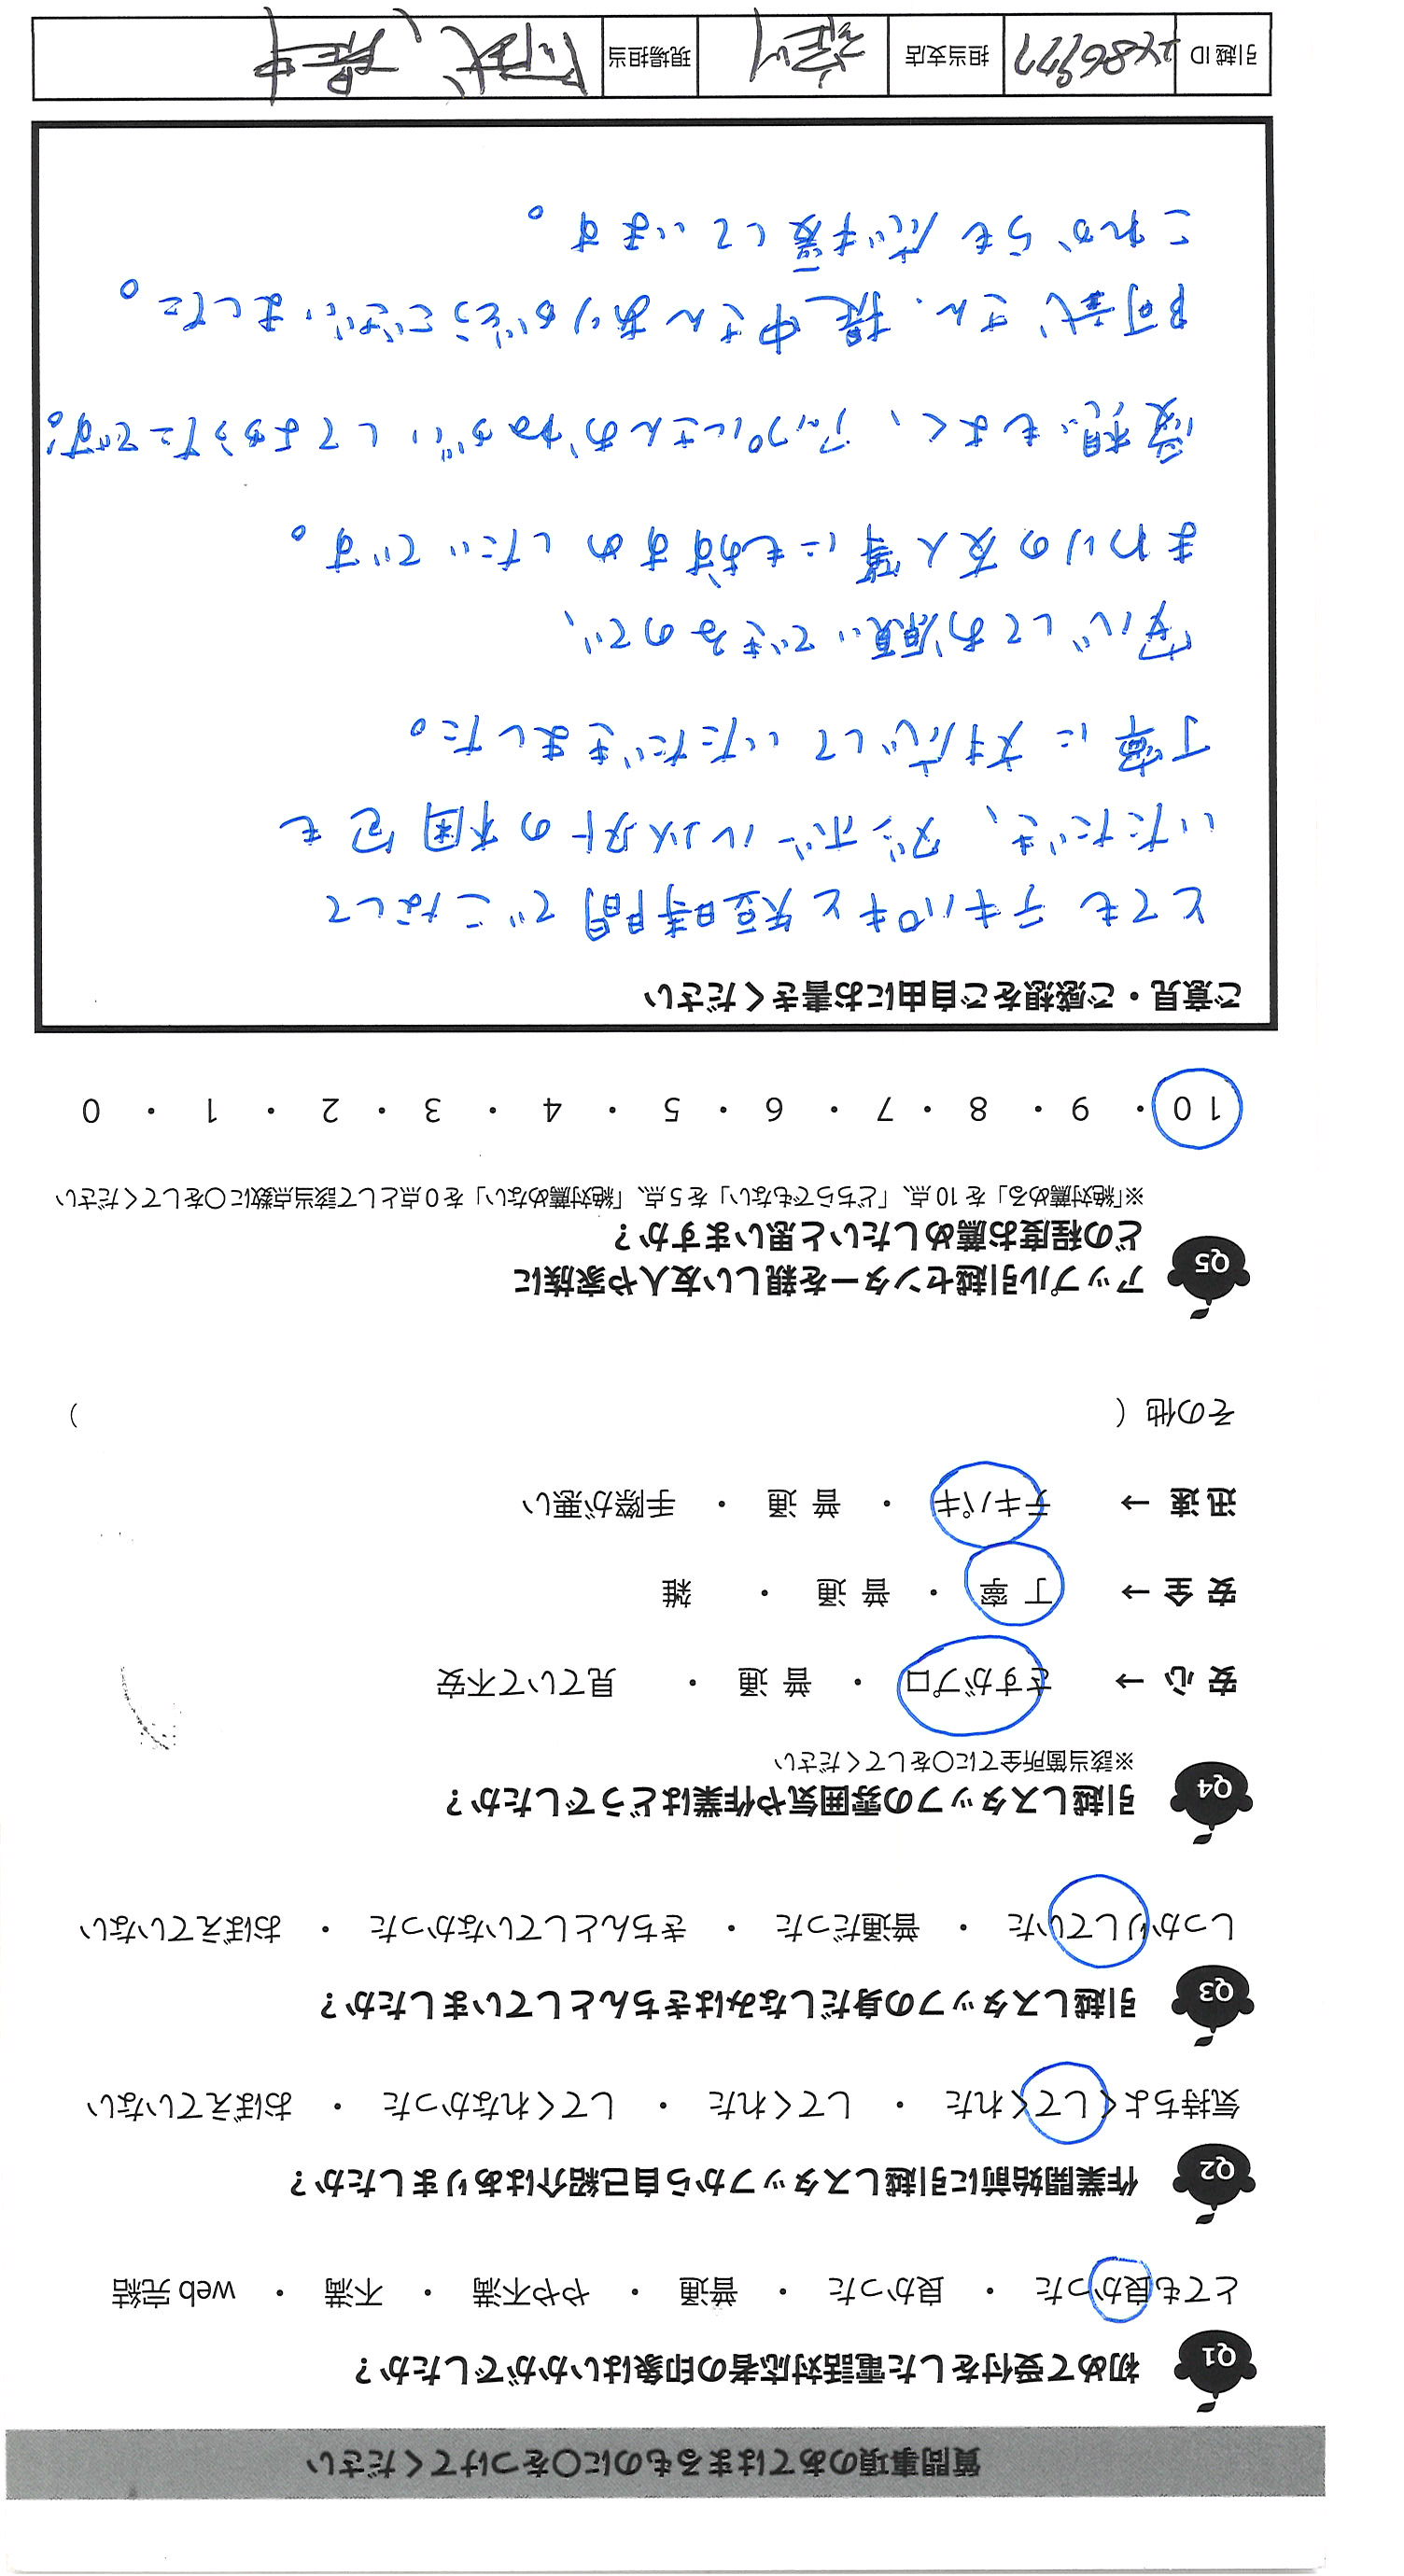 質問事項のあてはまるものに○をつけてください
Q1 初めて受付をした電話対応者の印象はいかがでしたか？
とても良かった ・ 良かった ・ 普通 ・ やや不満 ・ 不満 ・ web 完結
Q2 作業開始前に引越しスタッフから自己紹介はありましたか？
気持ちよくしてくれた ・ してくれた ・ してくれなかった ・ おぼえていない
Q3 引越しスタッフの身だしなみはきちんとしていましたか？
しっかりしていた ・ 普通だった ・ きちんとしていなかった ・ おぼえていない
Q4 引越しスタッフの雰囲気や作業はどうでしたか？
※該当箇所全てに○をしてください
安 心 → さすがプロ ・ 普 通 ・ 見ていて不安
安 全 → 丁 寧 ・ 普 通 ・ 雑
迅 速 → テキパキ ・ 普 通 ・ 手際が悪い
その他（ ）
Q5 アップル引越センターを親しい友人や家族に
どの程度お薦めしたいと思いますか？
※「絶対薦める」を 10 点、「どちらでもない」を 5 点、「絶対薦めない」を 0 点として該当点数に○をしてください
10 ・ 9 ・ 8 ・ 7 ・ 6 ・ 5 ・ 4 ・ 3 ・ 2 ・ 1 ・ 0
ご意見・ご感想をご自由にお書きください
とても テキパキと短時間でこなして
いただき、ダンボール以外の木困包も
丁寧に対応していただきました。
安心してお願いできるので、
まわりの友人等にもおすすめしたいです。
愛想もよく、アップルさんおねがいしてよかったです。
阿武さん、堤中さんありがとうございました。
これからも応援しています。
引越 ID 担当支店 現場担当 阿武、堤中